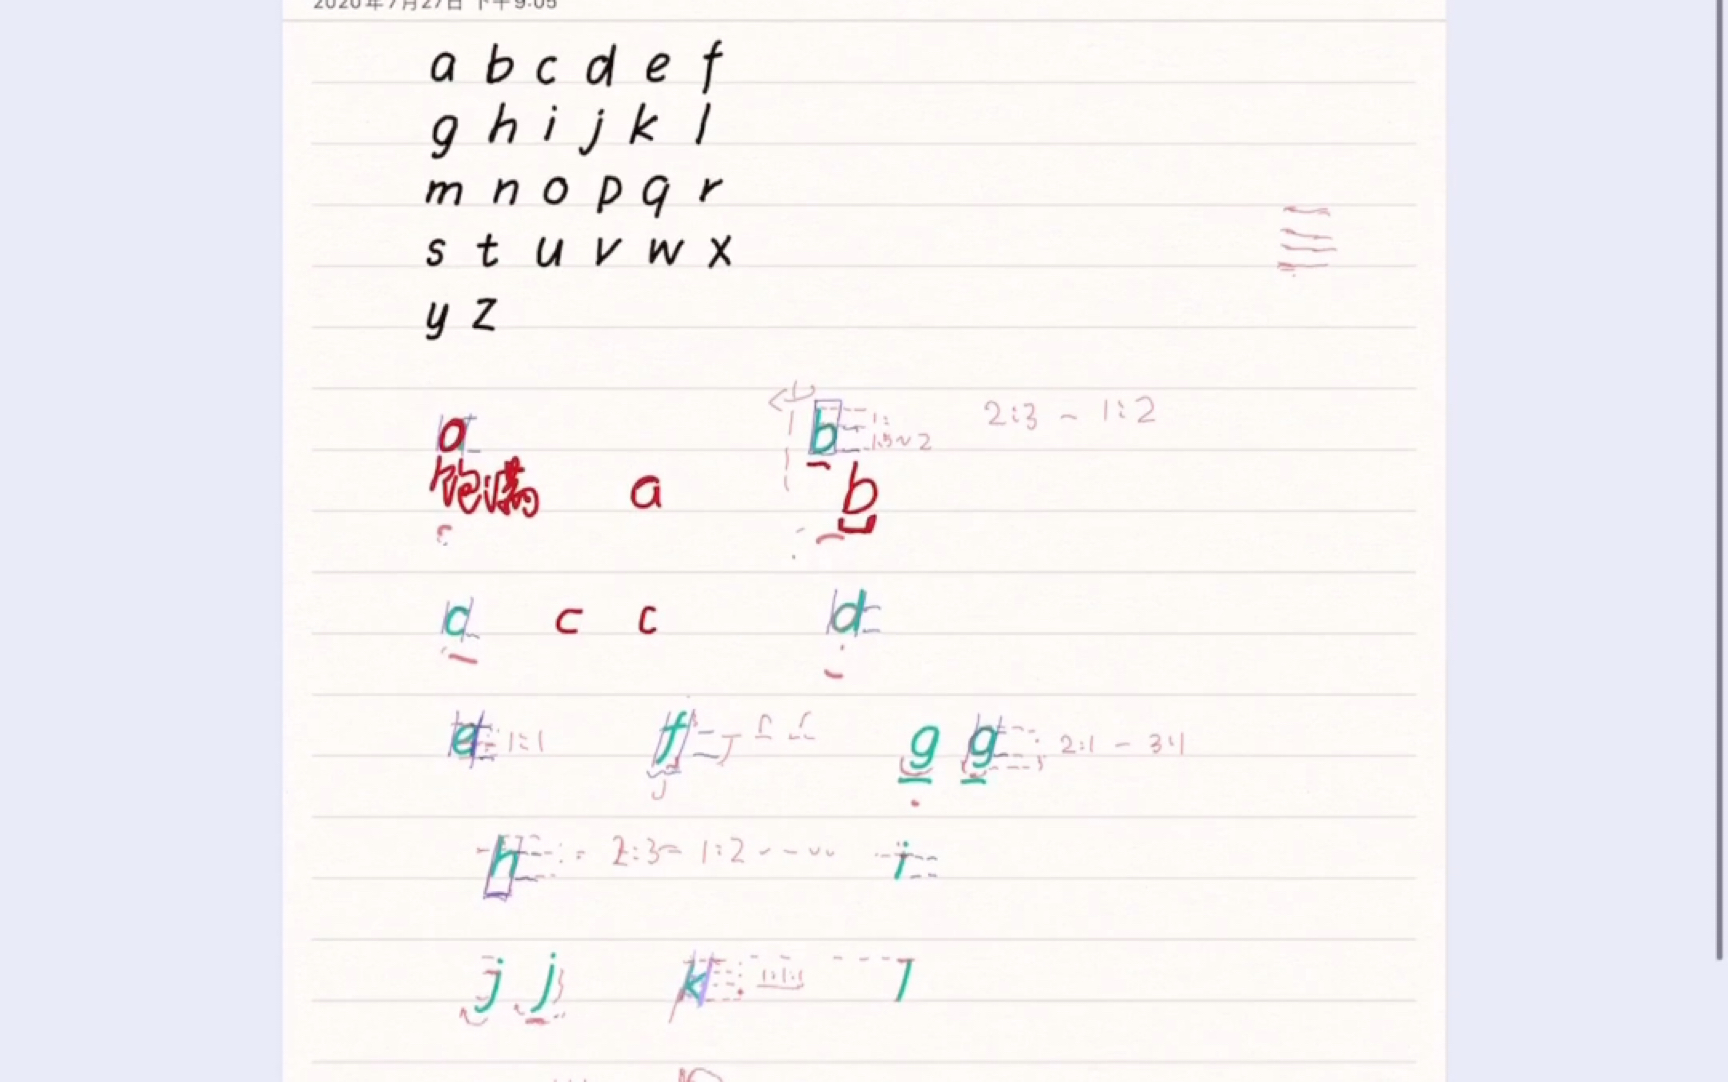 2020年7月27日 下午9:05
a b c d e f
g h i j k l
m n o p q r
s t u v w x
y z
a b 1: 2:3 ~ 1:2
1.5~2
饱满 a b
c c c d
e 1:1 f g g 2:1 - 3:1
h 2:3~ 1:2 i
j j k 1:1:1 l